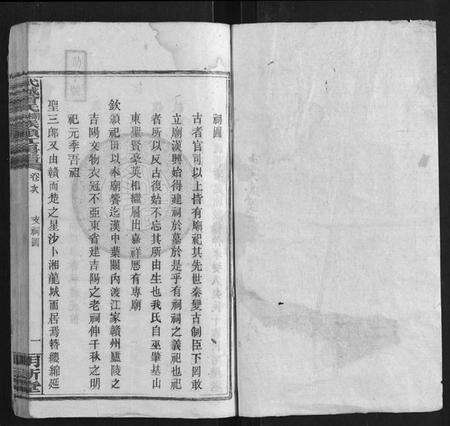 祠圖
古者官司以上皆有廟祀其先世秦變古制臣下罔敢
立廟漢興始得建祠於墓於是乎有祠祠之義祀也祀
者所以反古復始不忘其所由生也我氏自巫肇基山
東聖賢豪英相繼層出嘉祥厯有專廟
欽頒祀田以承廟饗迄漢中葉關內渡江家贛州廬陵之
吉陽文物衣冠不亞東省建吉陽之老祠伸千秋之明
祀元季吾祖
聖三郎又由贛而楚之星沙卜湘龍城而居焉簪纓綿延
卷次
支祠圖
一